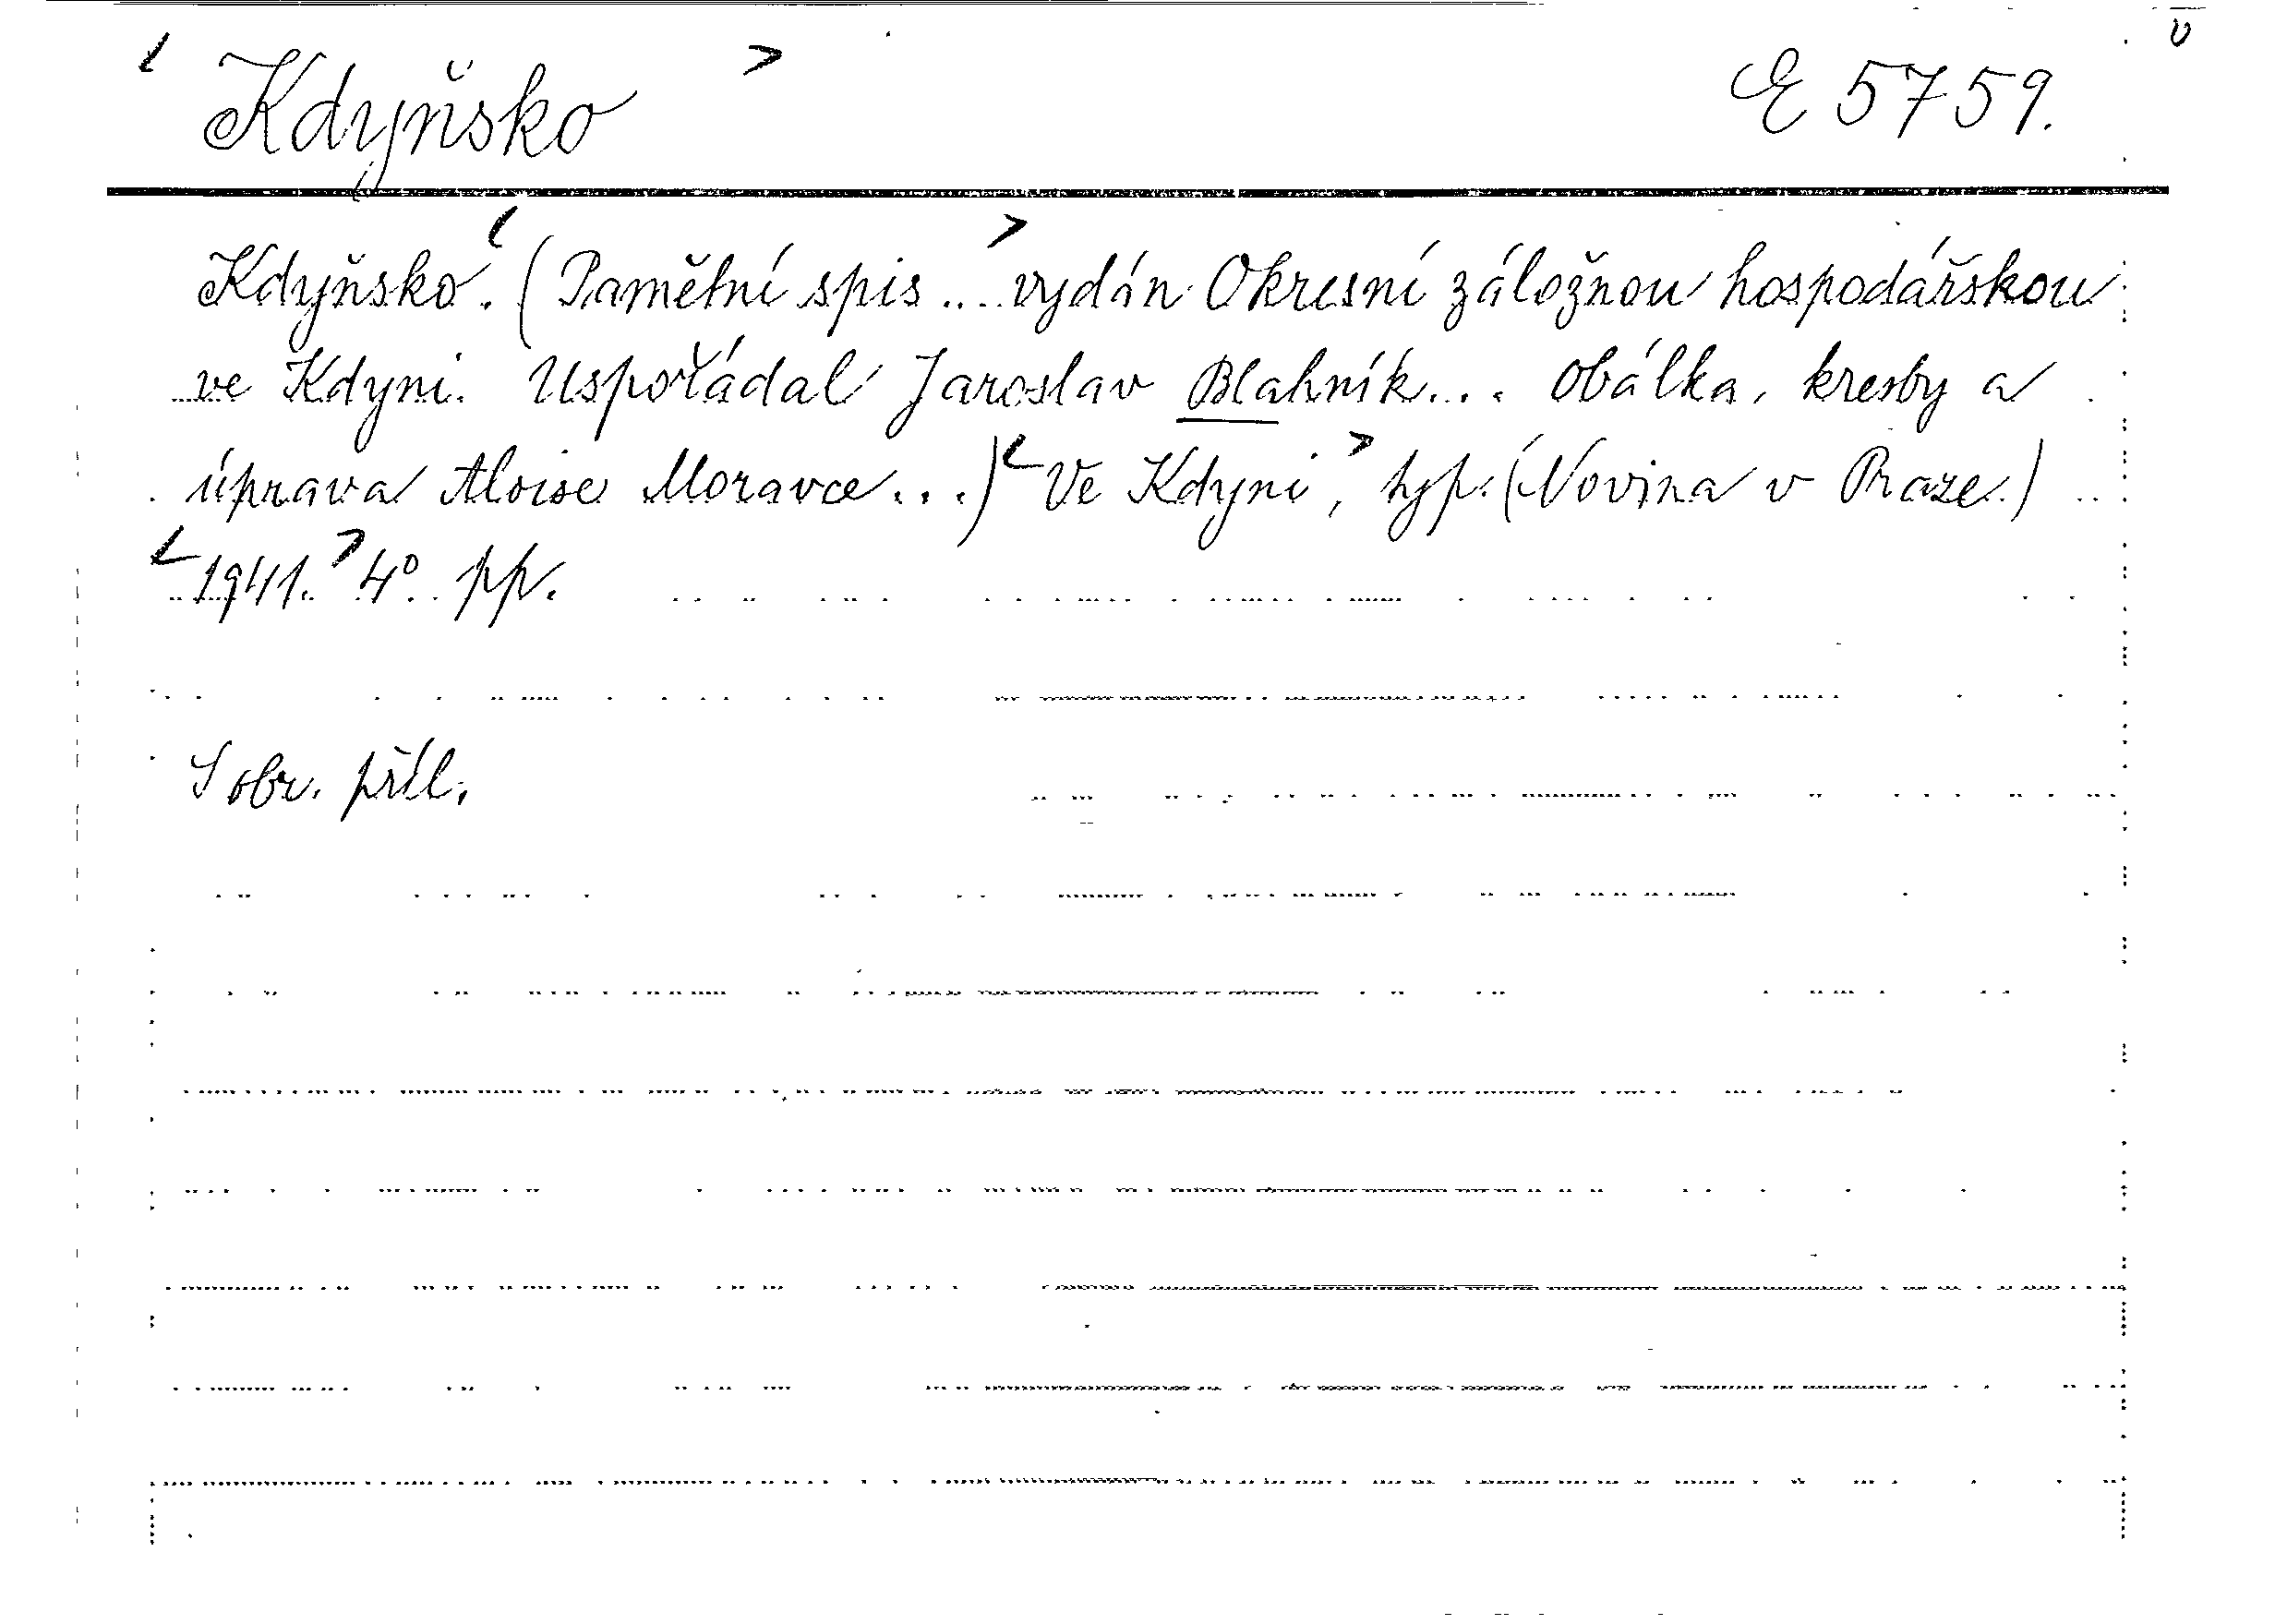 Kdyňsko E 5759.
Kdyňsko. (Pamětní spis .... vydán Okresní záložnou hospodářskou
ve Kdyni. Uspořádal Jaroslav Blahník... Obálka, kresby a
úprava Aloise Moravce...) Ve Kdyni, typ. (Novina v Praze.)
1941. 4° pp.
S obr. příl.